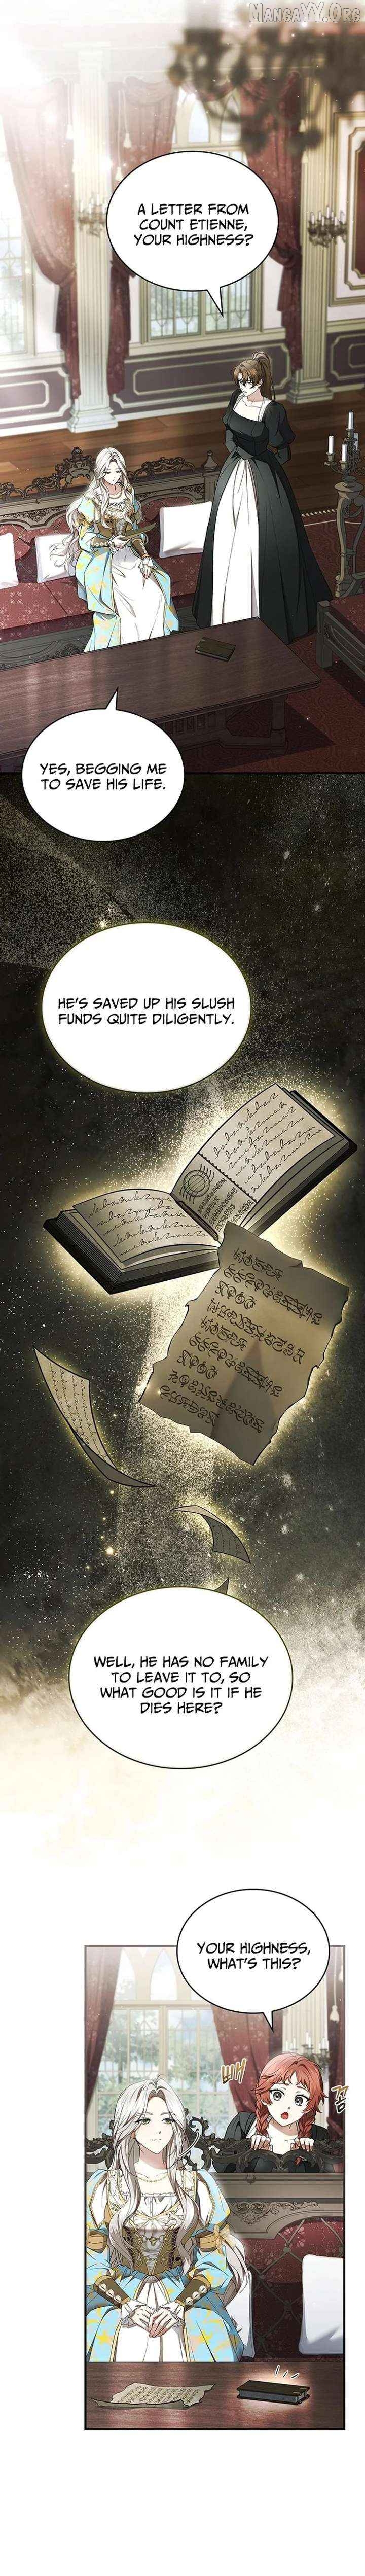 MANGAYY.ORG
A LETTER FROM
COUNT ETIENNE,
YOUR HIGHNESS?
YES, BEGGING ME
TO SAVE HIS LIFE.
HE'S SAVED UP HIS SLUSH
FUNDS QUITE DILIGENTLY.
WELL, HE HAS NO FAMILY
TO LEAVE IT TO, SO
WHAT GOOD IS IT IF HE
DIES HERE?
YOUR HIGHNESS,
WHAT'S THIS?
빼
꼼